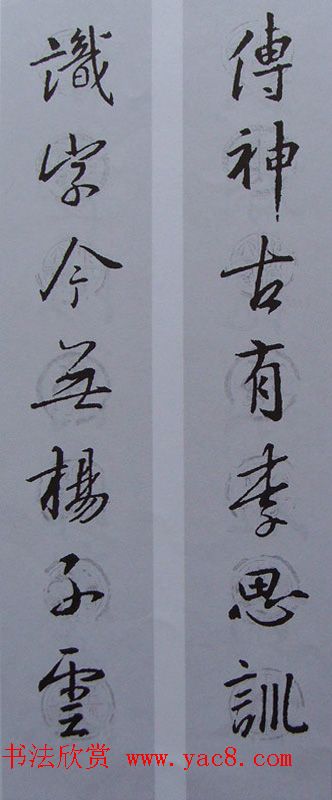 傳神古有李思訓
識字今無楊子雲
书法欣赏 www.yac8.com